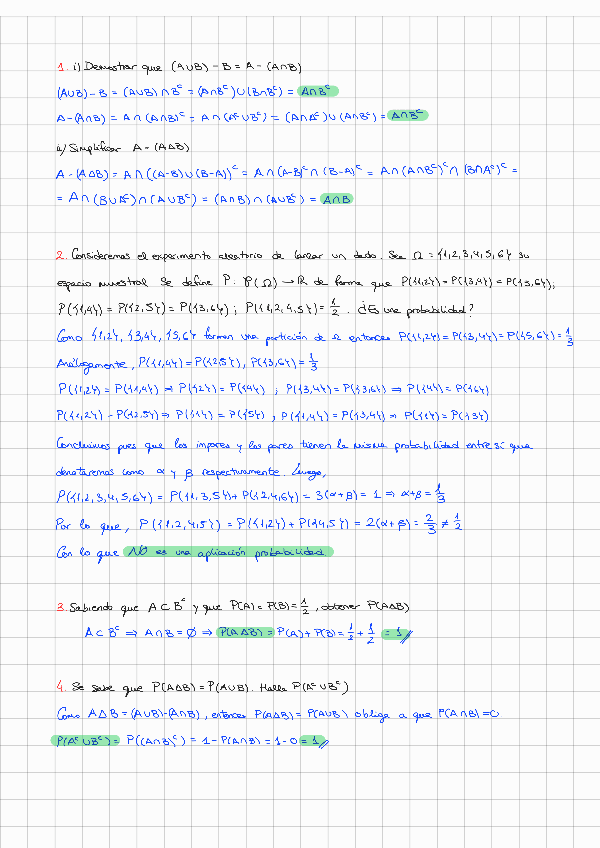 1. i) Demostrar que (A∪B) - B = A - (A∩B)
(A∪B) - B = (A∪B) ∩ Bᶜ = (A∩Bᶜ) ∪ (B∩Bᶜ) = A∩Bᶜ
A - (A∩B) = A ∩ (A∩B)ᶜ = A ∩ (Aᶜ∪Bᶜ) = (A∩Aᶜ) ∪ (A∩Bᶜ) = A∩Bᶜ
ii) Simplificar A - (A∆B)
A - (A∆B) = A ∩ ((A-B) ∪ (B-A))ᶜ = A ∩ (A-B)ᶜ ∩ (B-A)ᶜ = A ∩ (A∩Bᶜ)ᶜ ∩ (B∩Aᶜ)ᶜ =
= A ∩ (B∪Aᶜ) ∩ (A∪Bᶜ) = (A∩B) ∩ (A∪Bᶜ) = A∩B
2. Consideremos el experimento aleatorio de lanzar un dado. Sea Ω = {1,2,3,4,5,6} su
espacio muestral. Se define P: P(Ω) → ℝ de forma que P({1,2}) = P({3,4}) = P({5,6}),
P({1,4}) = P({2,5}) = P({3,6}) ; P({1,2,4,5}) = 1/2 . ¿Es una probabilidad?
Como {1,2}, {3,4}, {5,6} forman una partición de Ω entonces P({1,2}) = P({3,4}) = P({5,6}) = 1/3
Análogamente, P({1,4}) = P({2,5}), P({3,6}) = 1/3
P({1,2}) = P({1,4}) ⇒ P({2}) = P({4}) ; P({3,4}) = P({3,6}) ⇒ P({4}) = P({6})
P({1,2}) = P({2,5}) ⇒ P({1}) = P({5}) ; P({1,4}) = P({3,4}) ⇒ P({1}) = P({3})
Concluimos pues que los impares y los pares tienen la misma probabilidad entre sí que
denotaremos como α y β respectivamente. Luego,
P({1,2,3,4,5,6}) = P({1,3,5}) + P({2,4,6}) = 3(α+β) = 1 ⇒ α+β = 1/3
Por lo que, P({1,2,4,5}) = P({1,2}) + P({4,5}) = 2(α+β) = 2/3 ≠ 1/2
Con lo que NO es una aplicación probabilidad.
3. Sabiendo que A ⊂ Bᶜ y que P(A) = P(B) = 1/2, obtener P(A∆B)
A ⊂ Bᶜ ⇒ A∩B = ∅ ⇒ P(A∆B) = P(A) + P(B) = 1/2 + 1/2 = 1
4. Se sabe que P(A∆B) = P(A∪B). Halla P(Aᶜ∪Bᶜ)
Como A∆B = (A∪B) - (A∩B), entonces P(A∆B) = P(A∪B) obliga a que P(A∩B) = 0
P(Aᶜ∪Bᶜ) = P((A∩B)ᶜ) = 1 - P(A∩B) = 1 - 0 = 1